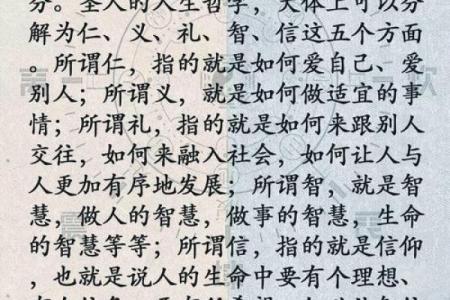 分。圣人的人生哲学，大体上可以分
解为仁、义、礼、智、信这五个方面
。所谓仁，指的就是如何爱自己、爱
别人；所谓义，就是如何做适宜的事
情；所谓礼，指的就是如何来跟别人
交往，如何来融入社会，如何让人与
人更加有序地发展；所谓智，就是智
慧，做人的智慧，做事的智慧，生命
的智慧等等；所谓信，指的就是信仰
，也就是说人的生命中要有理想、